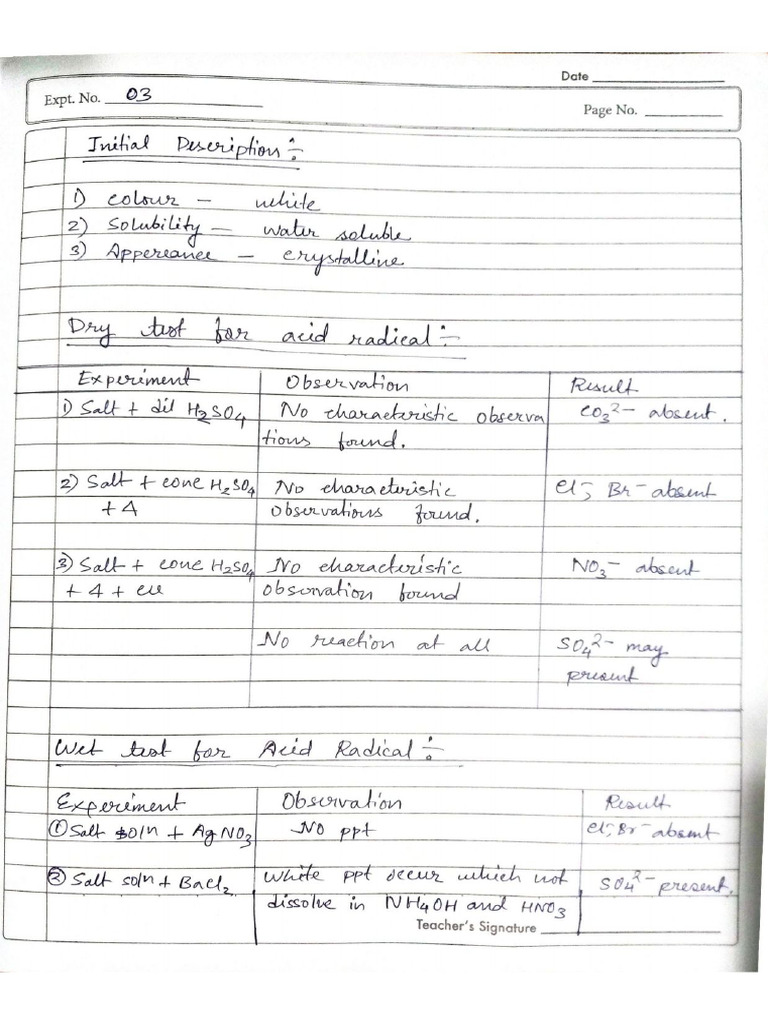 Date
Expt. No. 03
Page No.
Initial Description :-
1) Colour - white
2) Solubility - water soluble
3) Appereance - crystalline
Dry test for acid radical :-
Experiment Observation Result
1) Salt + dil H2SO4 No characteristic observa CO3 2- absent.
tions found.
2) Salt + conc H2SO4 No characteristic Cl-, Br- absent
+ Δ observations found.
3) Salt + conc H2SO4 No characteristic NO3- absent
+ Δ + cu observation found
No reaction at all SO4 2- may
present
Wet test for Acid Radical :-
Experiment Observation Result
① Salt soln + AgNO3 No ppt Cl-, Br- absent
② Salt soln + BaCl2 White ppt occur which not SO4 2- present.
dissolve in NH4OH and HNO3
Teacher's Signature